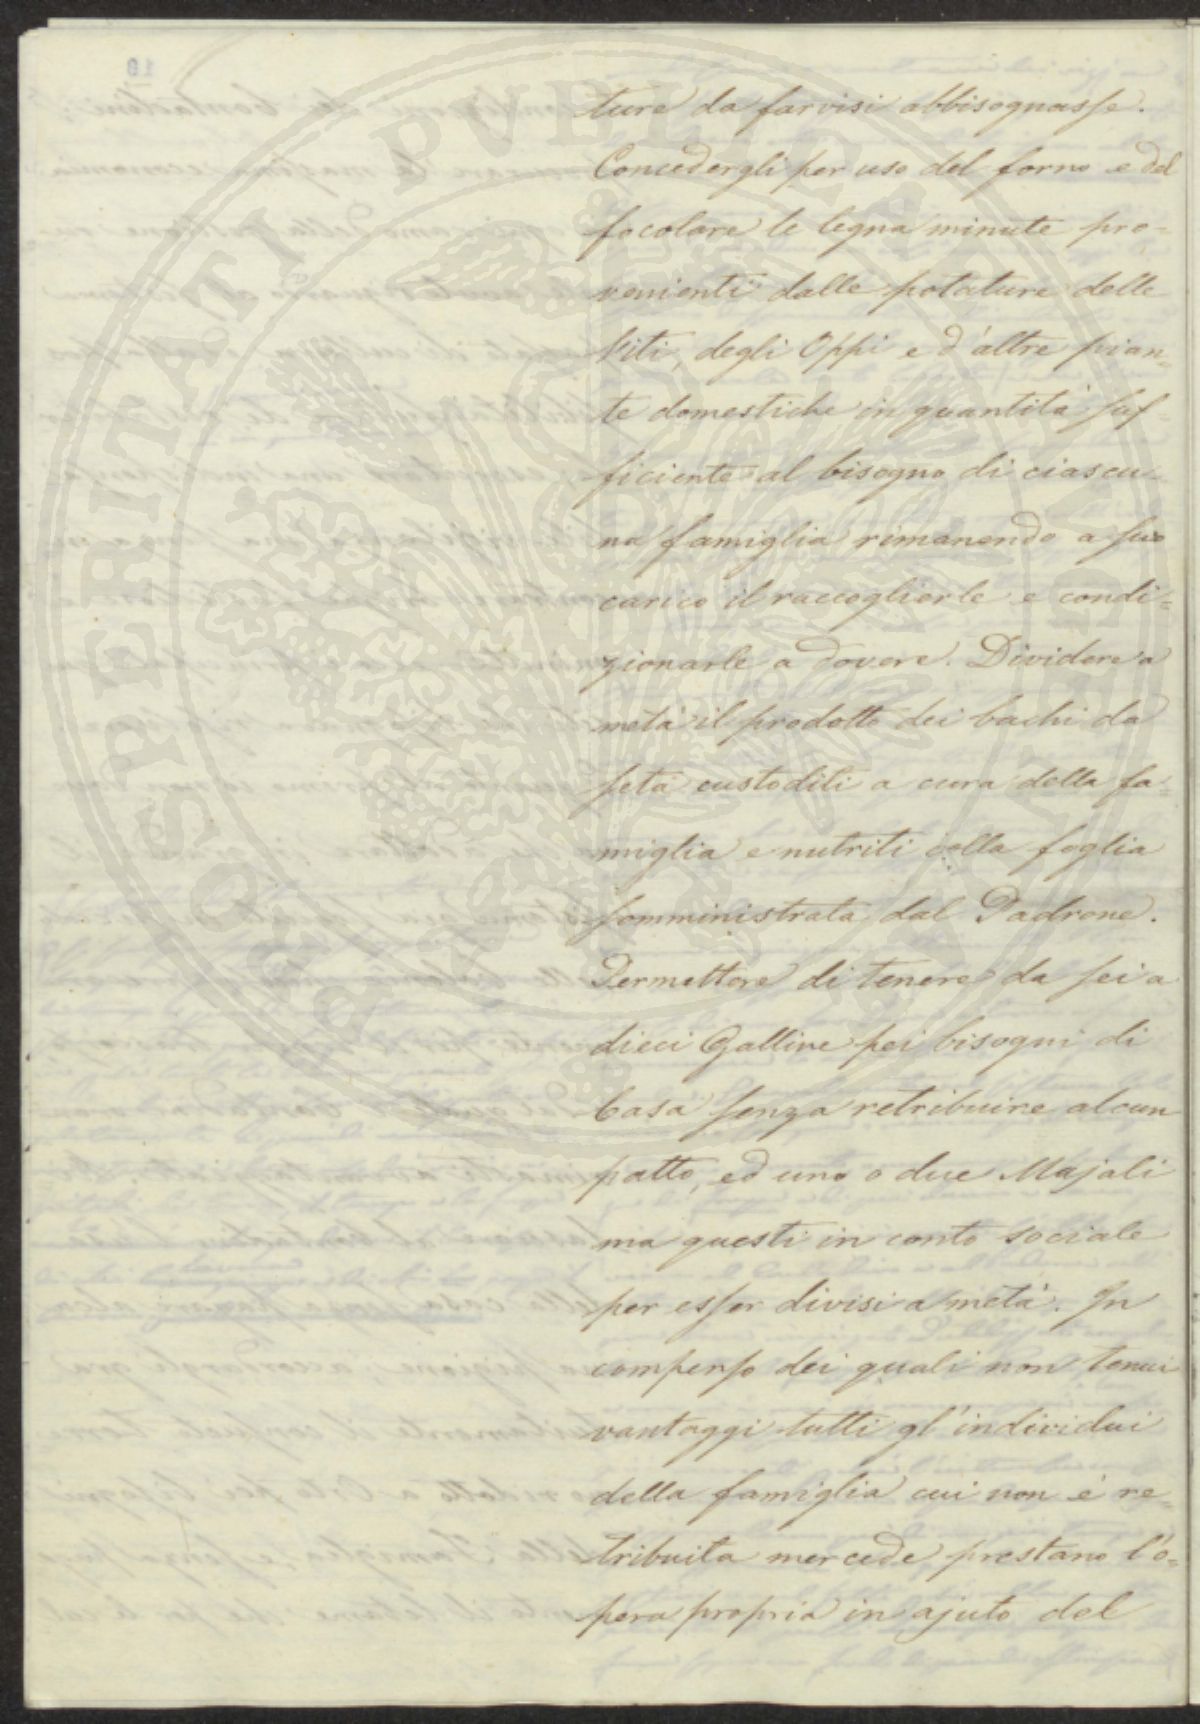 ture da farvisi abbisognasse.
Concedergli per uso del forno e del
focolare le legna minute pro=
venienti dalle potature delle
Viti, degli Oppi e d'altre pian=
te domestiche in quantità suf=
ficiente al bisogno di ciascu=
na famiglia rimanendo a suo
carico il raccoglierle e condi=
zionarle a dovere. Dividere a
metà il prodotto dei bachi da
seta custoditi a cura della fa=
miglia e nutriti colla foglia
somministrata dal Padrone.
Permettere di tenere da sei a
dieci Galline pei bisogni di
Casa senza retribuire alcun
patto, ed uno o due Majali
ma questi in conto sociale
per esser divisi a metà. In
compenso dei quali non tenui
vantaggi tutti gl'individui
della famiglia cui non è re=
tribuita mercede prestano l'o=
pera propria in ajuto del
PROSPERITATI PVBLICAE AVGENDAE